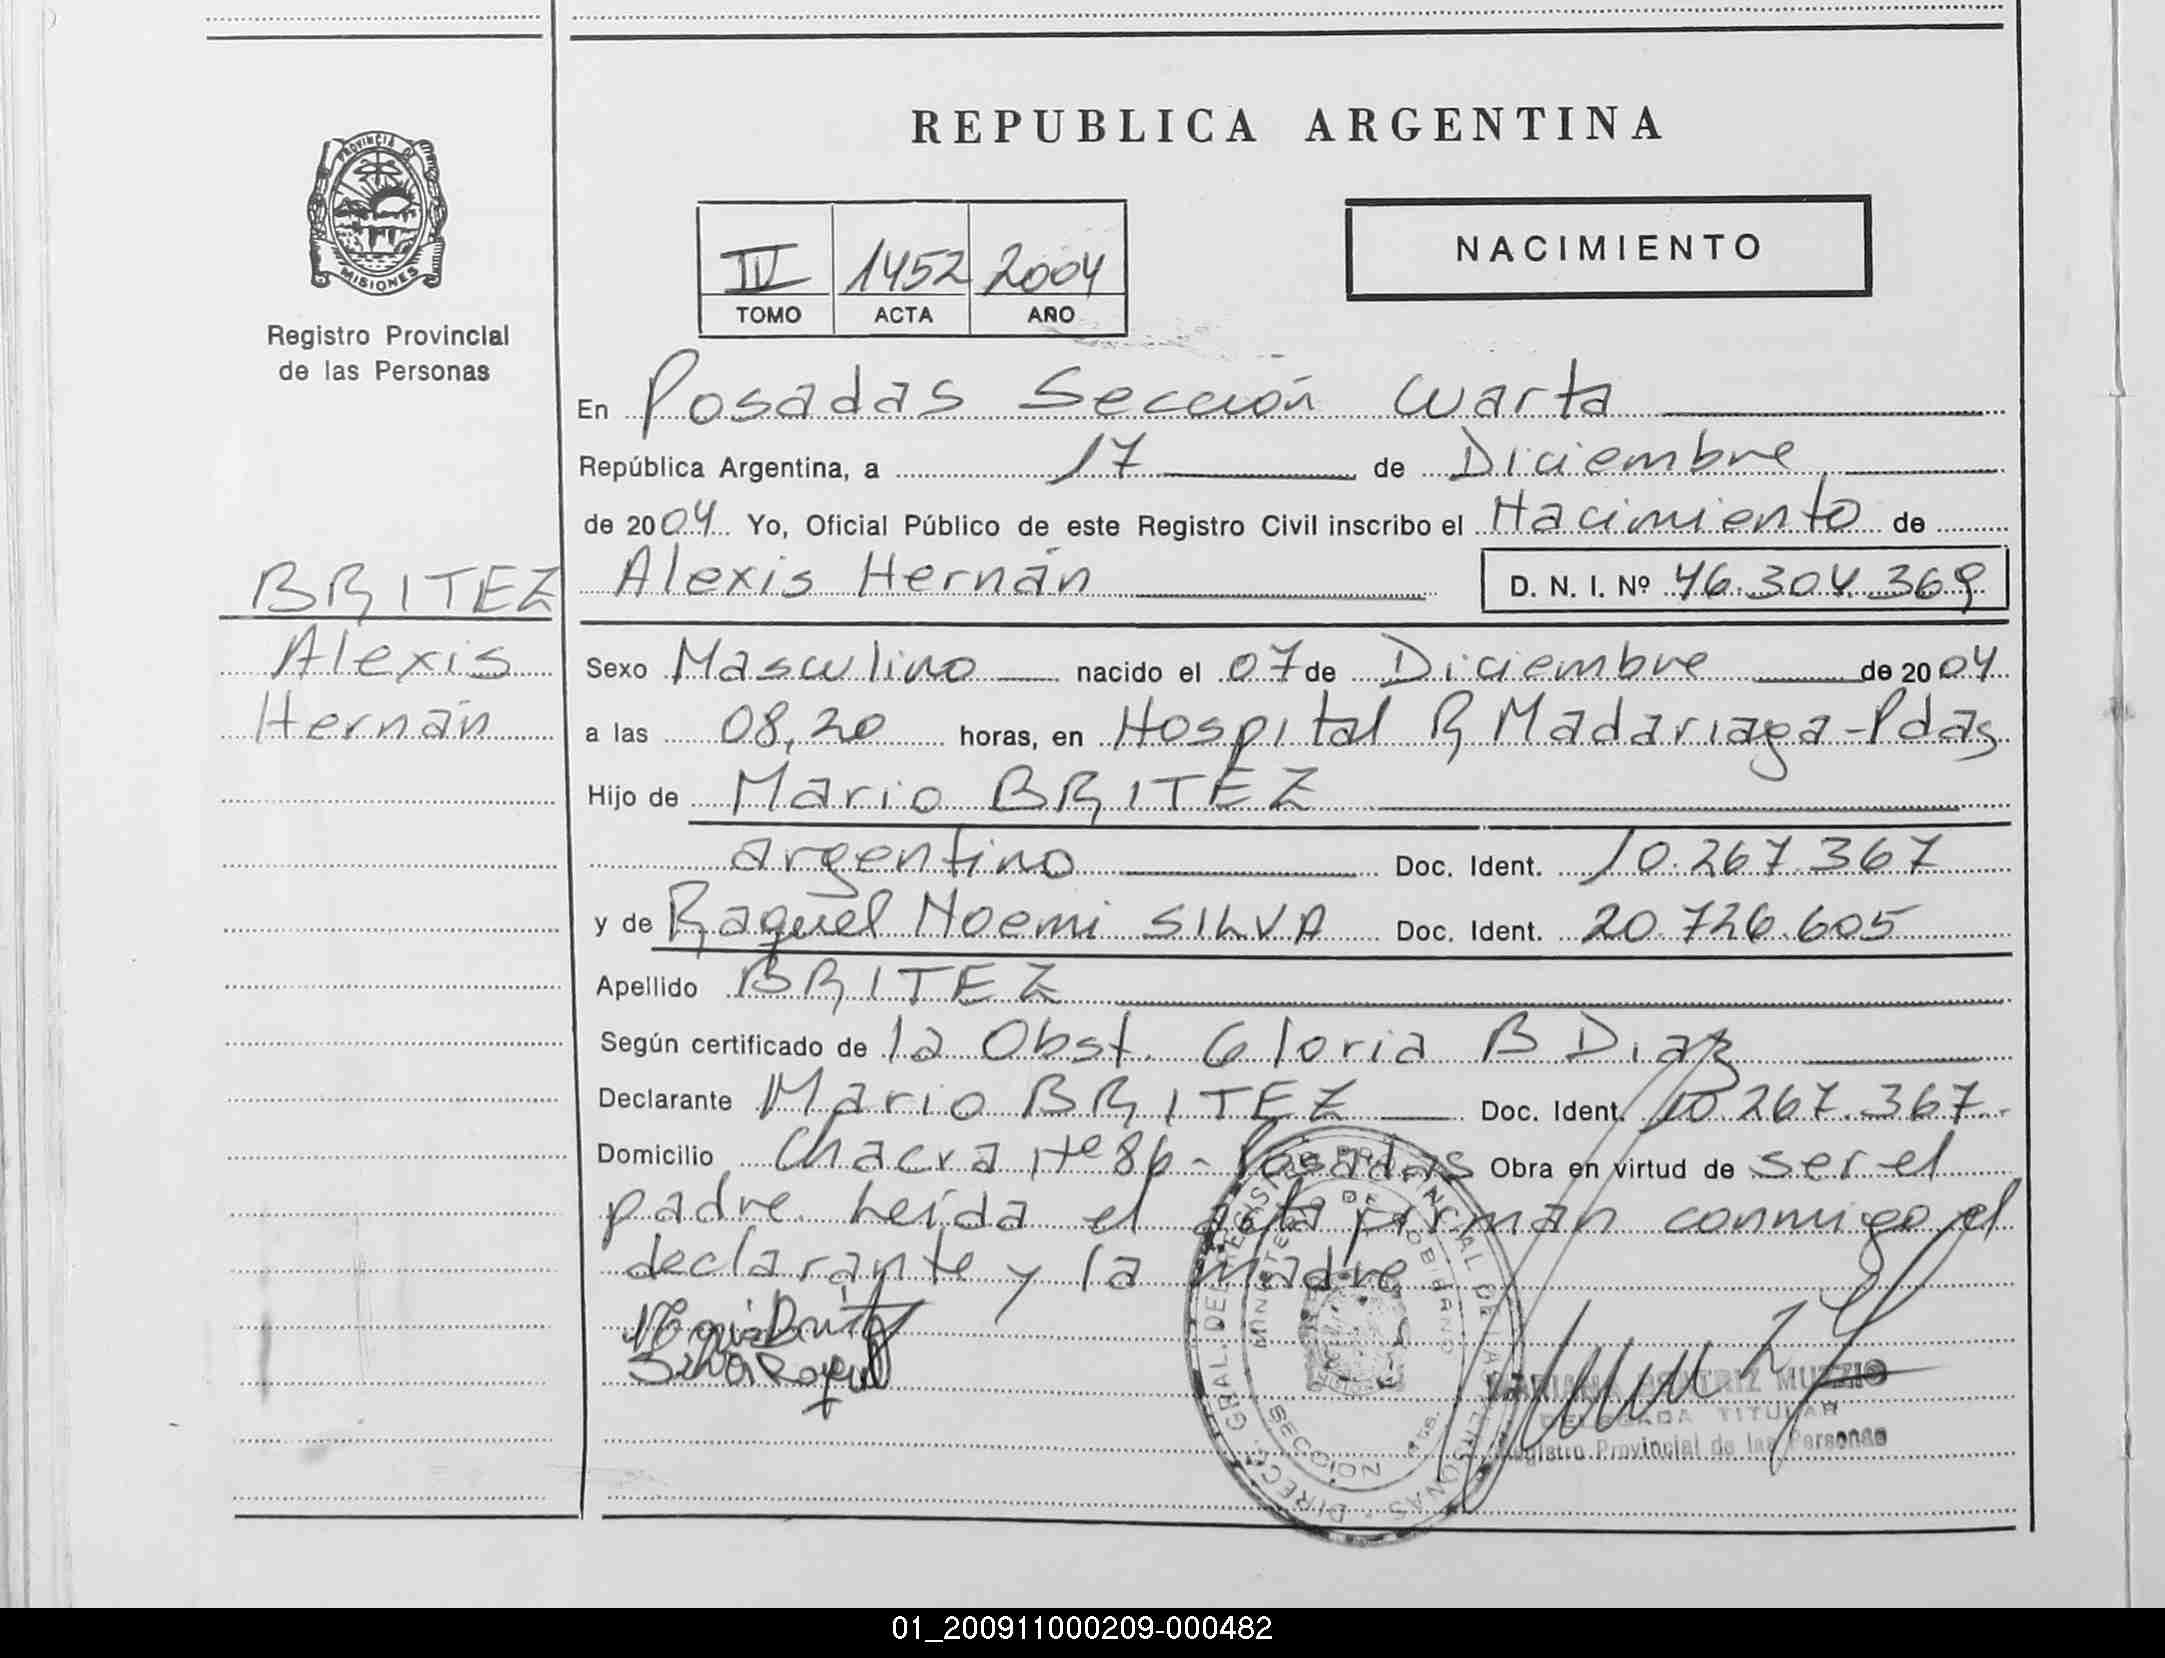 REPUBLICA ARGENTINA
PROVINCIA DE
MISIONES
Registro Provincial
de las Personas
IV 1452 2004
TOMO ACTA AÑO
NACIMIENTO
En Posadas Sección Cuarta
República Argentina, a 17 de Diciembre
de 2004 Yo, Oficial Público de este Registro Civil inscribo el Nacimiento de
BRITEZ
Alexis
Hernán
Alexis Hernán D. N. I. Nº 46.304.369
Sexo Masculino nacido el 07 de Diciembre de 2004
a las 08,20 horas, en Hospital R Madariaga-Pdas
Hijo de Mario BRITEZ
argentino Doc. Ident. 10.267.367
y de Raquel Noemi SILVA Doc. Ident. 20.726.605
Apellido BRITEZ
Según certificado de la Obst. Gloria B Diaz
Declarante Mario BRITEZ Doc. Ident. 10.267.367.-
Domicilio Chacra Nº 86 - Posadas Obra en virtud de ser el
padre. Leída el acta firman conmigo el
declarante y la madre
Silva Raquel
DIREC. GRAL. DEL REGISTRO PROVINCIAL DE LAS PERSONAS
MINISTERIO DE GOBIERNO
SECCION
DELEGADA TITULAR
Registro Provincial de las Personas
01_200911000209-000482